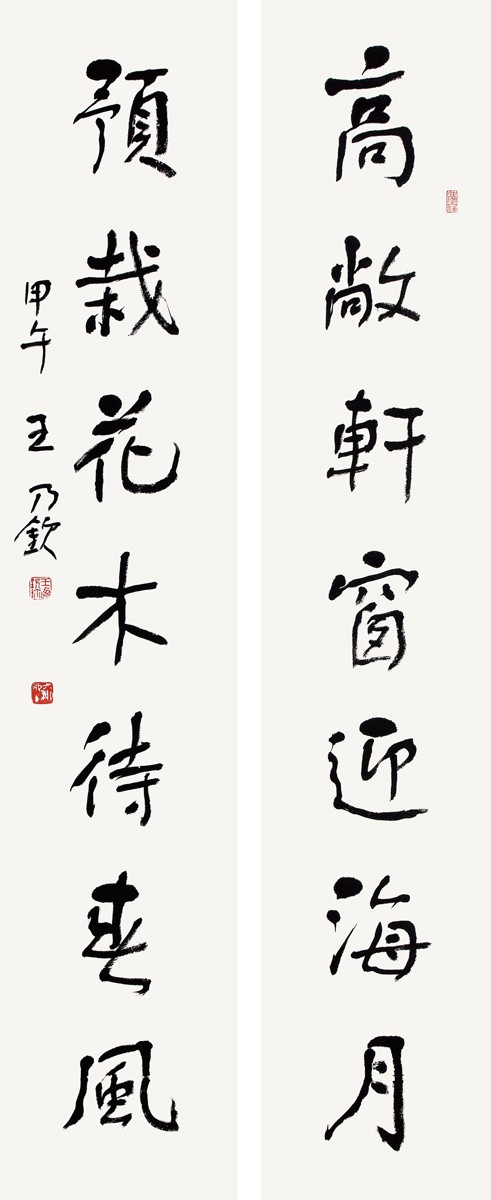 高敞軒窗迎海月
預栽花木待春風
甲午 王乃欽